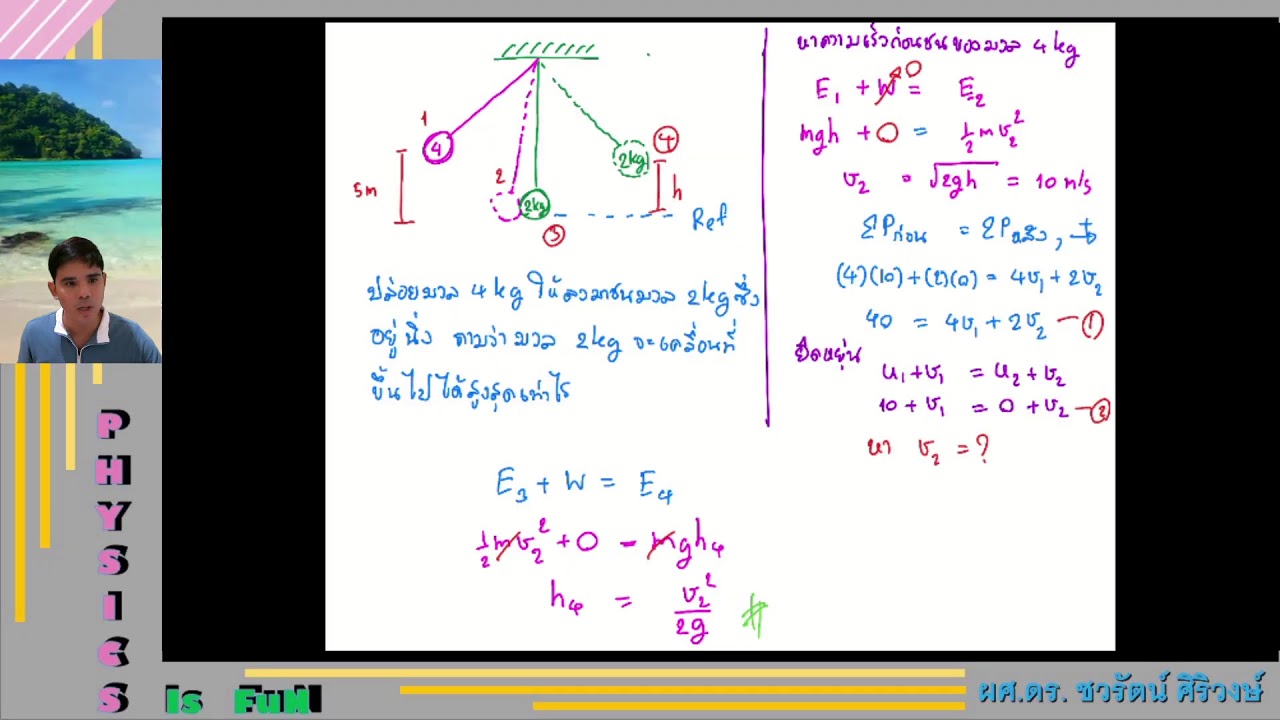 1
4
5m
2
2kg
3
2kg
4
h
Ref
ปล่อยมวล 4kg ให้ลงมาชนมวล 2kg ซึ่ง
อยู่นิ่ง ถามว่ามวล 2kg จะเคลื่อนที่
ขึ้นไปได้สูงสุดเท่าไร
E₃ + W = E₄
½mv₂² + 0 = mgh₄
h₄ = v₂²/2g #
หาความเร็วก่อนชนของมวล 4kg
E₁ + W = E₂
0
mgh + 0 = ½mv₂²
v₂ = √2gh = 10 m/s
ΣPก่อน = ΣPหลัง, →+
(4)(10)+(2)(0) = 4v₁+2v₂
40 = 4v₁+2v₂ —①
ยืดหยุ่น
u₁+v₁ = u₂+v₂
10+v₁ = 0+v₂ —②
หา v₂ = ?
PHYSICS
Is FuN
ผศ.ดร. ชวรัตน์ ศิริวงษ์